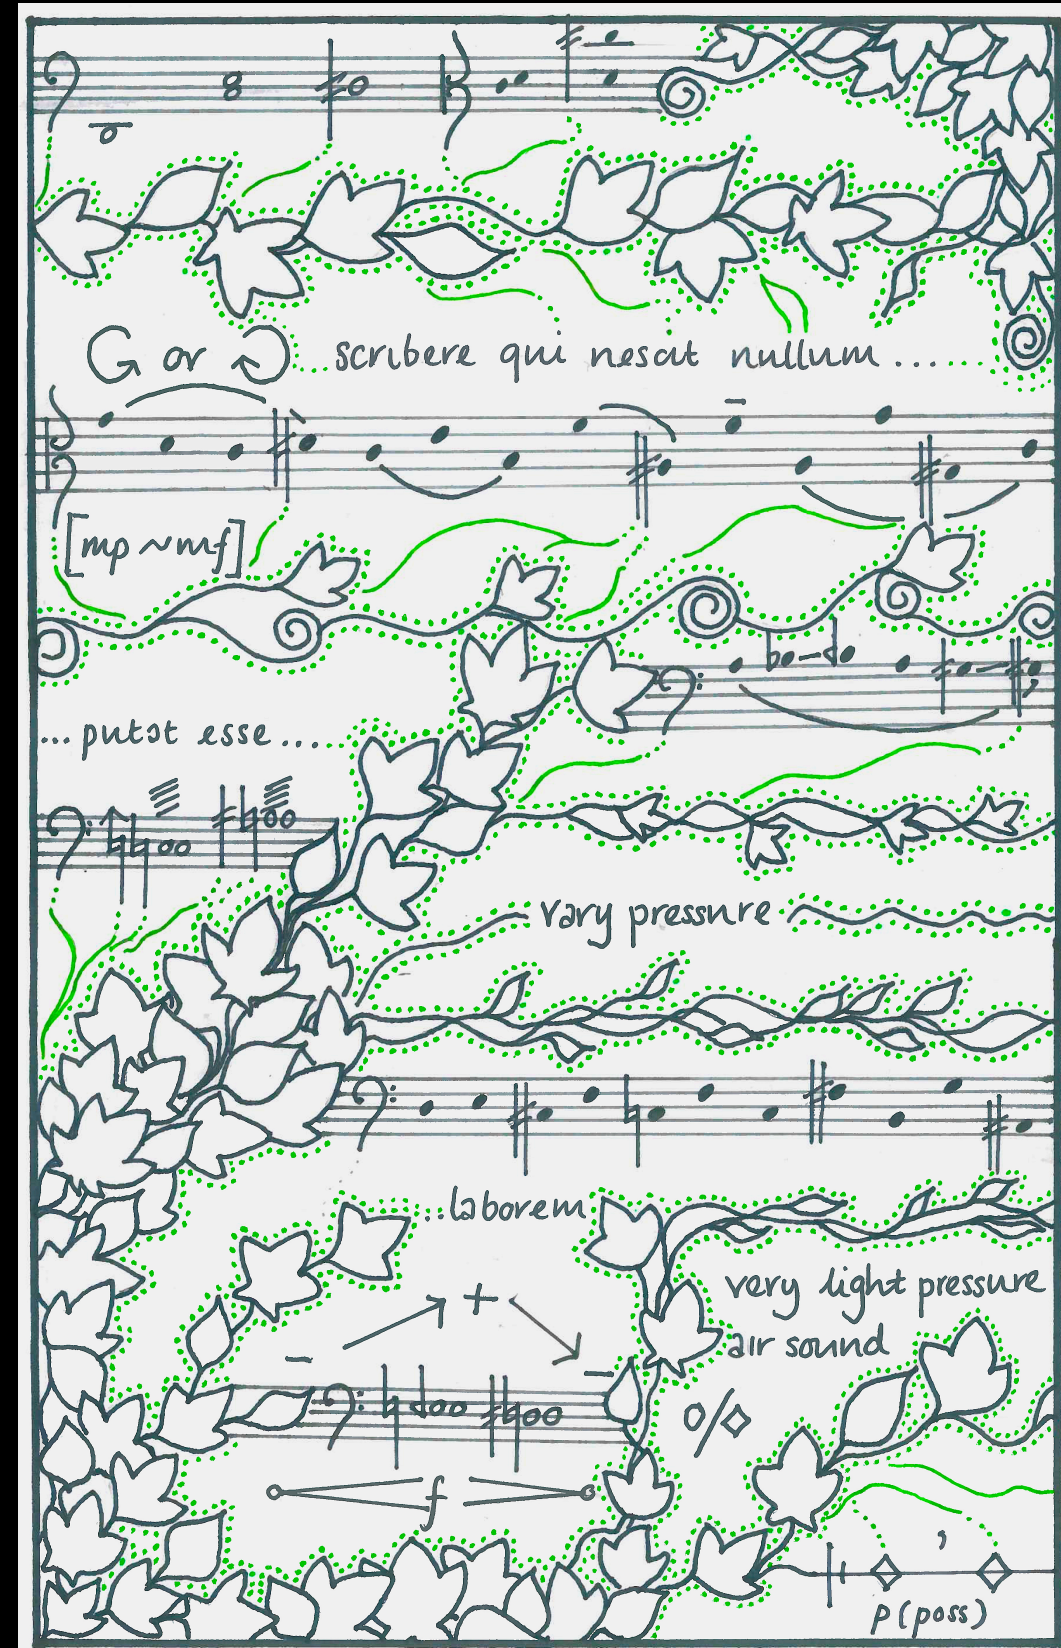 8
G or
scribere qui nescit nullum......
[mp ~ mf]
... putat esse.....
vary pressure
...laborem
very light pressure
air sound
o/◇
f
p (poss)